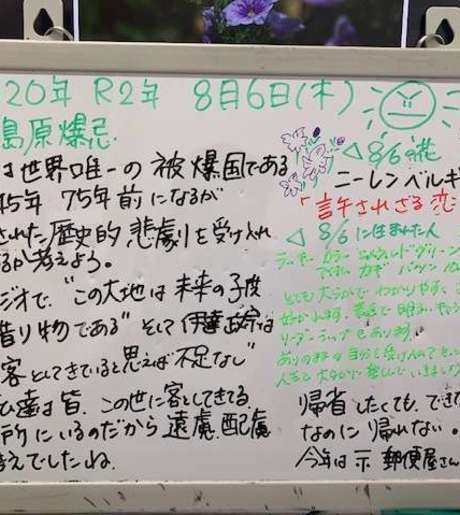 20年 R2年 8月6日(木)
島原爆忌.
は世界唯一の被爆国である
45年 75年前になるが
された歴史的悲劇を受け入れ
るか考えよう。
ジオで、"この大地は未来の子供
借り物である" そして伊達政宗は
客としてきていると思えば不足なし"
達は皆、この世に客としてきてる
所にいるのだから遠慮、配慮
考えでしたね.
◁ 8/6の花
ニーレンベルギ
「許されざる恋
◁ 8/6に生まれた人
ラッキーカラー
とても大らかで わかりやす
好かれます。
リーダーシップもあります
ありのままの自分を受け入れて
帰省したくても、でき
なのに帰れない。
今年は 〒 郵便屋さん